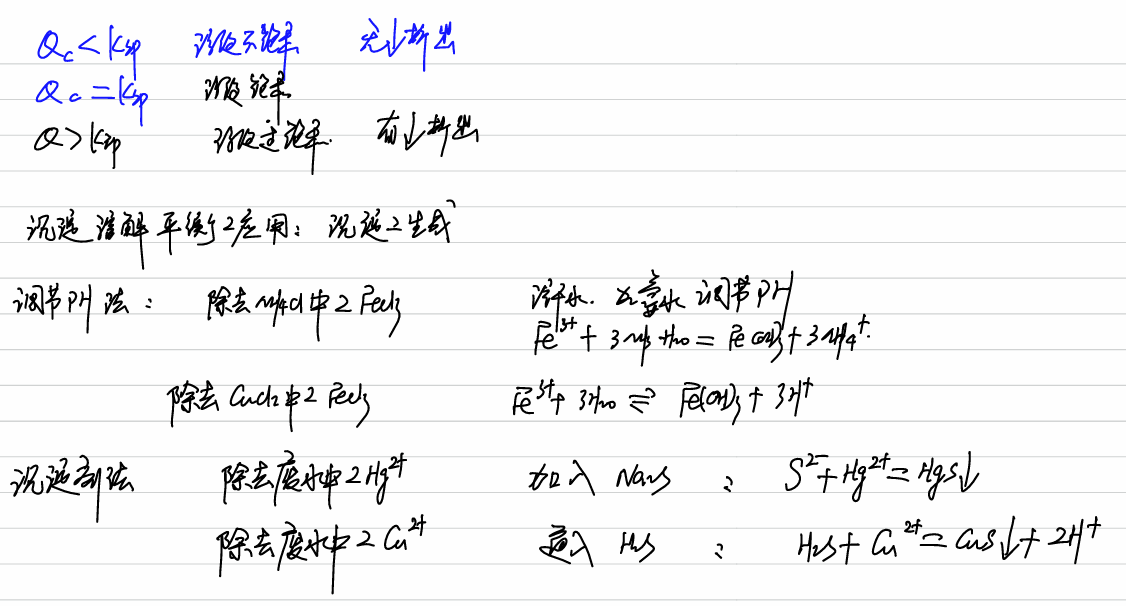 Qc < Ksp 溶液不饱和 无↓析出
Qc = Ksp 溶液饱和
Q > Ksp 溶液过饱和. 有↓析出
沉淀溶解平衡之应用: 沉淀之生成
调节PH法: 除去NH4Cl中之FeCl3 溶于水. 加氨水调节PH
Fe³⁺ + 3NH3·H2O = Fe(OH)3 + 3NH4⁺.
除去CuCl2中之FeCl3 Fe³⁺ + 3H2O ⇌ Fe(OH)3 + 3H⁺
沉淀剂法 除去废水中之Hg²⁺ 加入 Na2S : S²⁻ + Hg²⁺ = HgS↓
除去废水中之Cu²⁺ 通入 H2S : H2S + Cu²⁺ = CuS↓ + 2H⁺